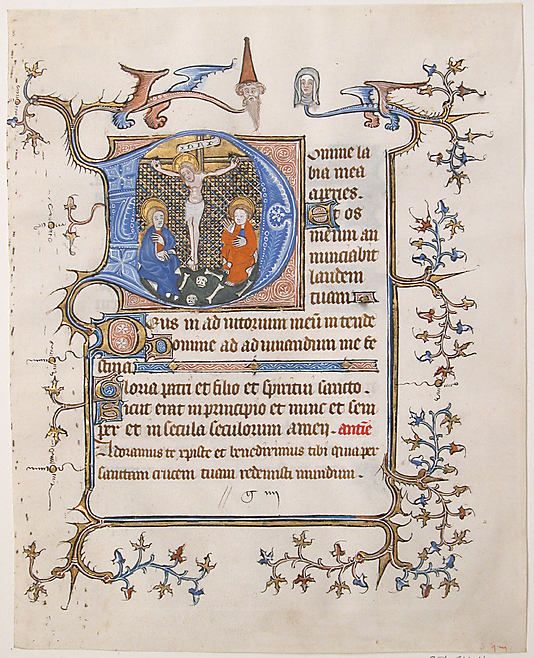 INRI
Domine la
bia mea
aperies.
Et os
meum an
nunciabit
laudem
tuam
Deus in ad iutorium meū in tende
Domine ad ad iuuandum me fe
stina
Gloria patri et filio et spiritui sancto.
Sicut erat in principio et nunc et sem
per et in secula seculorum amen. antiē
Adoramus te xp̄iste et benedicimus tibi quia per
sanctam crucem tuam redemisti mundum.